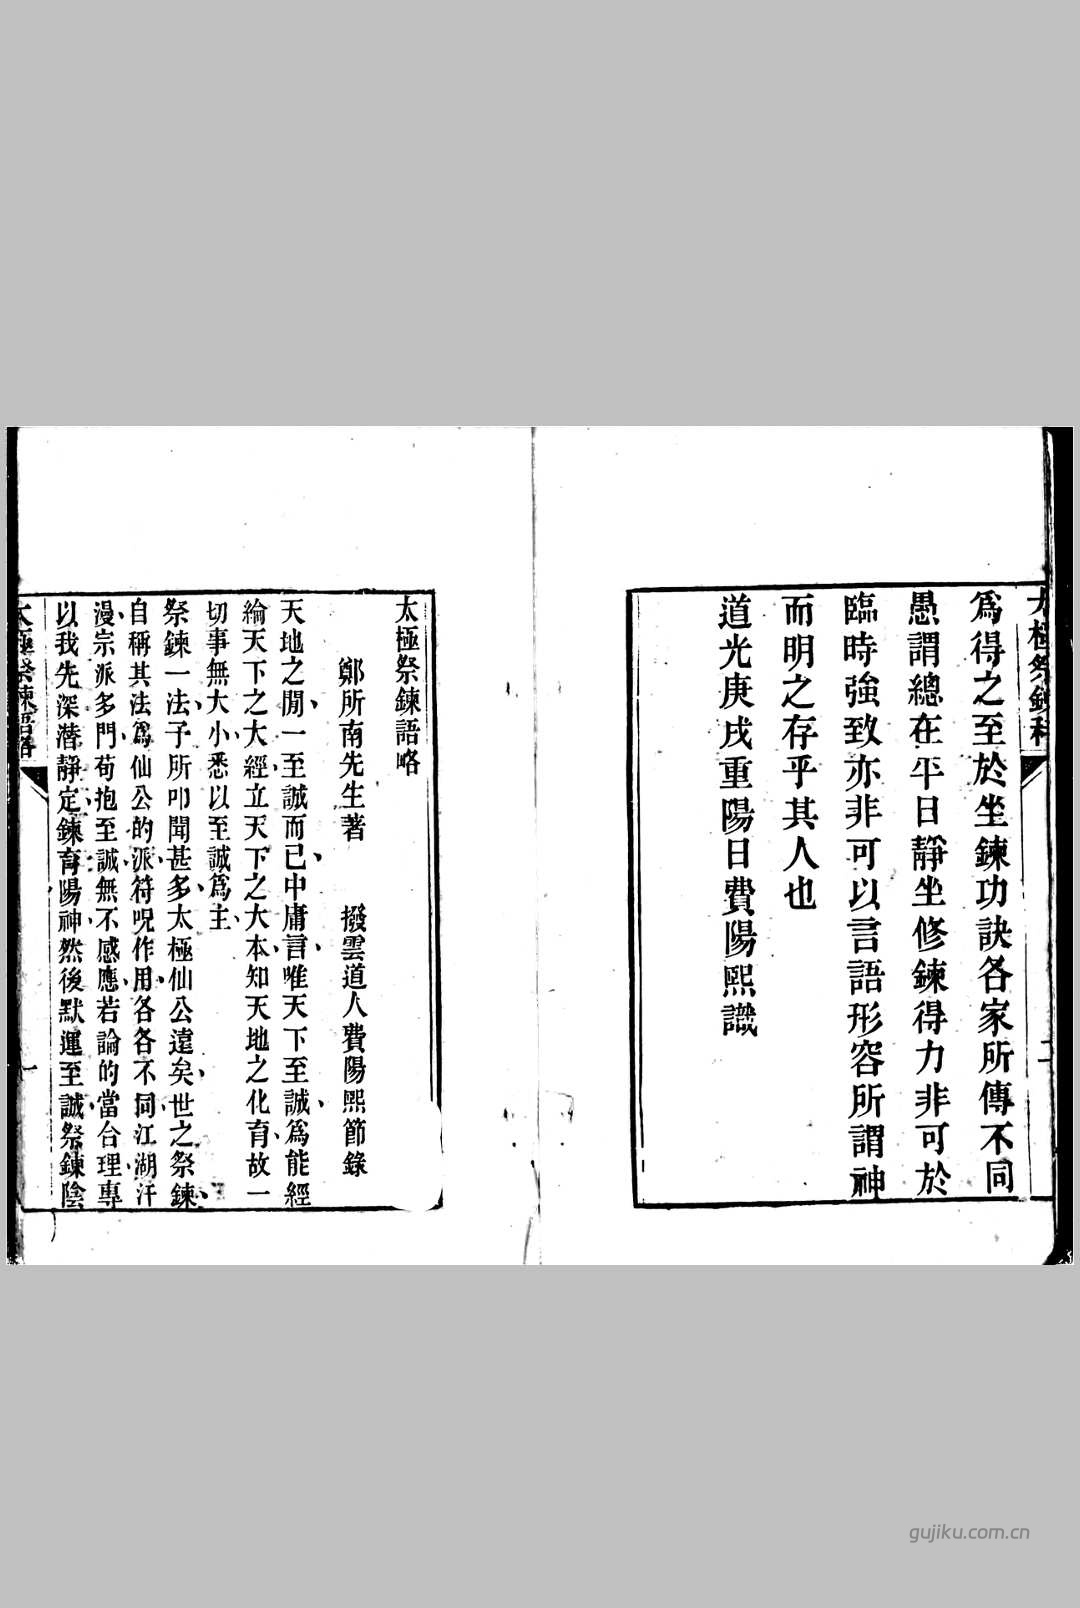 太極祭鍊科
二
爲得之至於坐鍊功訣各家所傳不同
愚謂總在平日靜坐修鍊得力非可於
臨時強致亦非可以言語形容所謂神
而明之存乎其人也
道光庚戌重陽日費陽熙識
太極祭鍊語略
鄭所南先生著　撥雲道人費陽熙節錄
天地之閒一至誠而已中庸言唯天下至誠爲能經
綸天下之大經立天下之大本知天地之化育故一
切事無大小悉以至誠爲主
祭鍊一法子所叩聞甚多太極仙公遠矣世之祭鍊
自稱其法爲仙公的派符呪作用各各不同江湖汗
漫宗派多門苟抱至誠無不感應若論的當合理專
以我先深潛靜定鍊育陽神然後默運至誠祭鍊陰
太極祭鍊語略
一
gujiku.com.cn